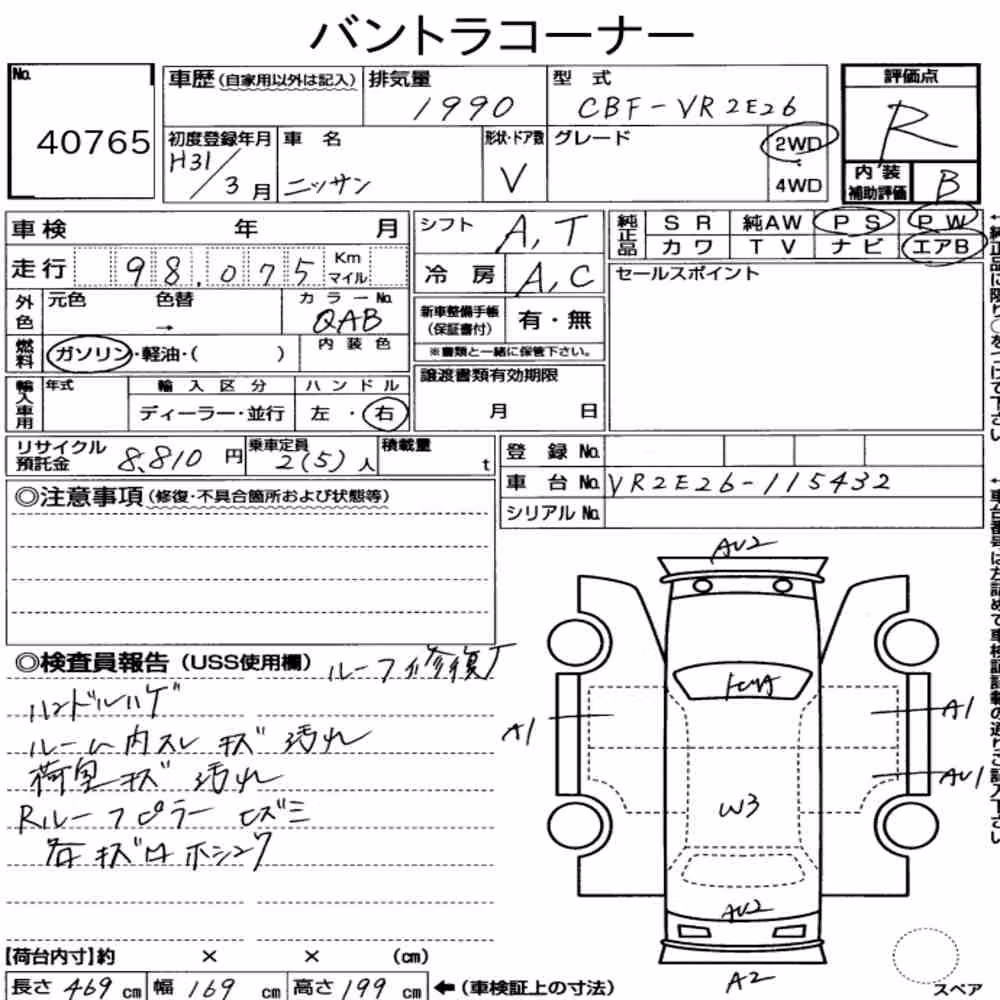 バントラコーナー
No. 40765
車歴(自家用以外は記入) 排気量 1990 型式 CBF-VR2E26 評価点 R
初度登録年月 H31/3月 車名 ニッサン 形状・ドア数 V グレード 2WD 4WD
内装補助評価 B
車検 年 月 シフト A,T 純正品 SR 純AW PS PW
カワ TV ナビ エアB
走行 98,075 Km マイル 冷房 A,C セールスポイント
外色 元色 色替 → カラーNo. QAB 新車整備手帳(保証書付) 有・無
燃料 ガソリン・軽油・( ) 内装色 ※書類と一緒に保管下さい。
輸入車用 年式 輸入区分 ディーラー・並行 ハンドル 左・右 譲渡書類有効期限 月 日
リサイクル預託金 8,810円 乗車定員 2(5)人 積載量 t
登録No.
車台No. VR2E26-115432
シリアルNo.
◎注意事項(修復・不具合箇所および状態等)
◎検査員報告(USS使用欄) ルーフ修復
ハンドルハゲ
ルーム内スレ キズ 汚れ
荷室キズ 汚れ
Rルーフピラー ヒズミ
各キズ
AU2
A1
A1
AU1
W3
AU2
A2
スペア
【荷台内寸】約 × × (cm)
長さ 469 cm 幅 169 cm 高さ 199 cm ←(車検証上の寸法)
↑純正品に限り○をつけて下さい